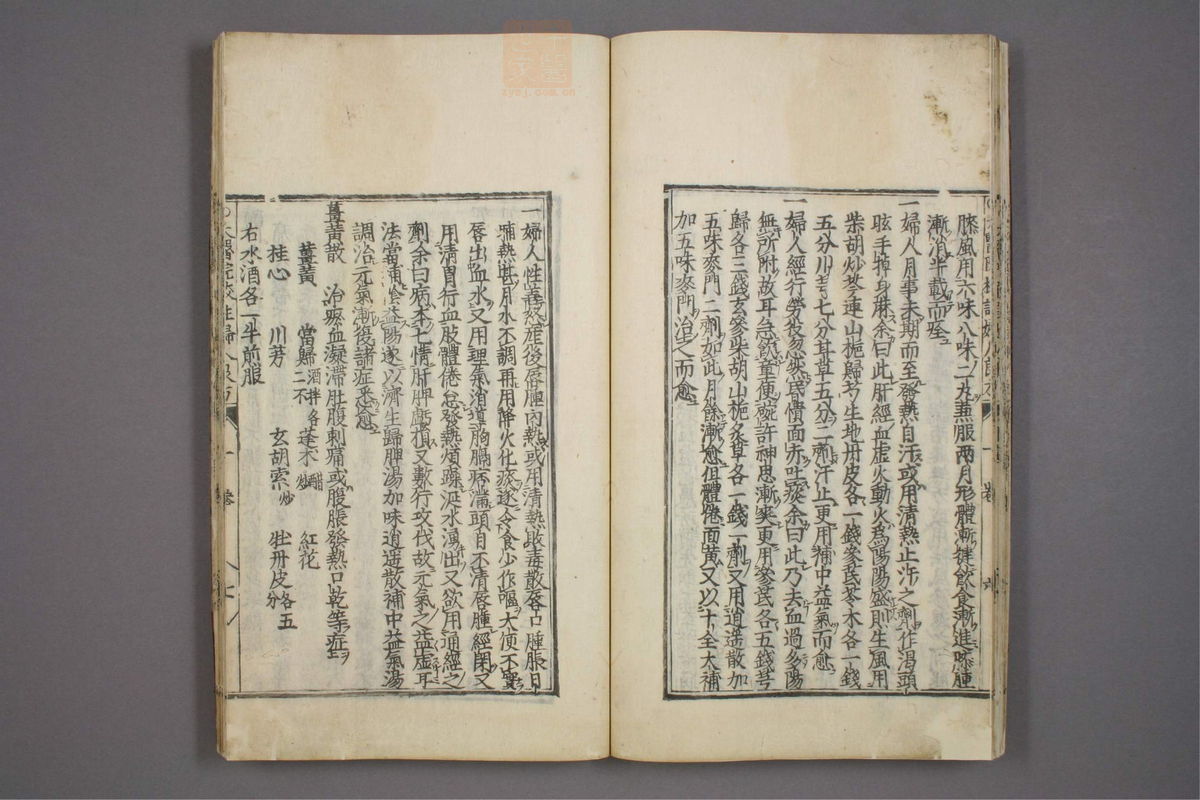 膝風用六味八味二丸兼服兩月形體漸健飲食漸進膝腫
漸消半載而痊
一婦人月事未期而至發熱自汗或用清熱止汗之劑作渴頭
眩手掉身麻余曰此肝經血虛火動火爲陽陽盛則生風用
柴胡炒芩連山梔歸芍生地丹皮各一錢參芪苓朮各一錢
五分川芎七分甘草五分二劑汗止更用補中益氣而愈
一婦人經行勞役忽然昏憒面赤吐痰余曰此乃去血過多陽
無所附故耳急飲童便碗許神思漸爽更用參芪各五錢芎
歸各三錢玄參柴胡山梔炙草各一錢一劑又用逍遥散加
五味麥門二劑如此月餘漸愈但體倦面黃又以十全大補
加五味麥門治之而愈
一婦人性善怒產後唇腫內熱或用清熱敗毒散唇口腫脹日
晡熱甚月水不調再用降火化痰遂令食少作嘔大便不實
唇出血水又用理氣消導胸膈痞滿頭目不清唇腫經閉又
用清胃行血肢體倦怠發熱煩躁涎水湧出又欲用通經之
劑余曰病本七情肝脾虧損又數行攻伐故元氣之益虛耳
法當補陰益陽遂以濟生歸脾湯加味逍遥散補中益氣湯
調治元氣漸復諸症悉愈
薑黃散 治瘀血凝滯肚腹刺痛或腹脹發熱口乾等症
薑黃 當歸酒拌各二不 蓬朮醋炒 紅花
桂心 川芎 玄胡索炒 牡丹皮各五分
右水酒各一半煎服